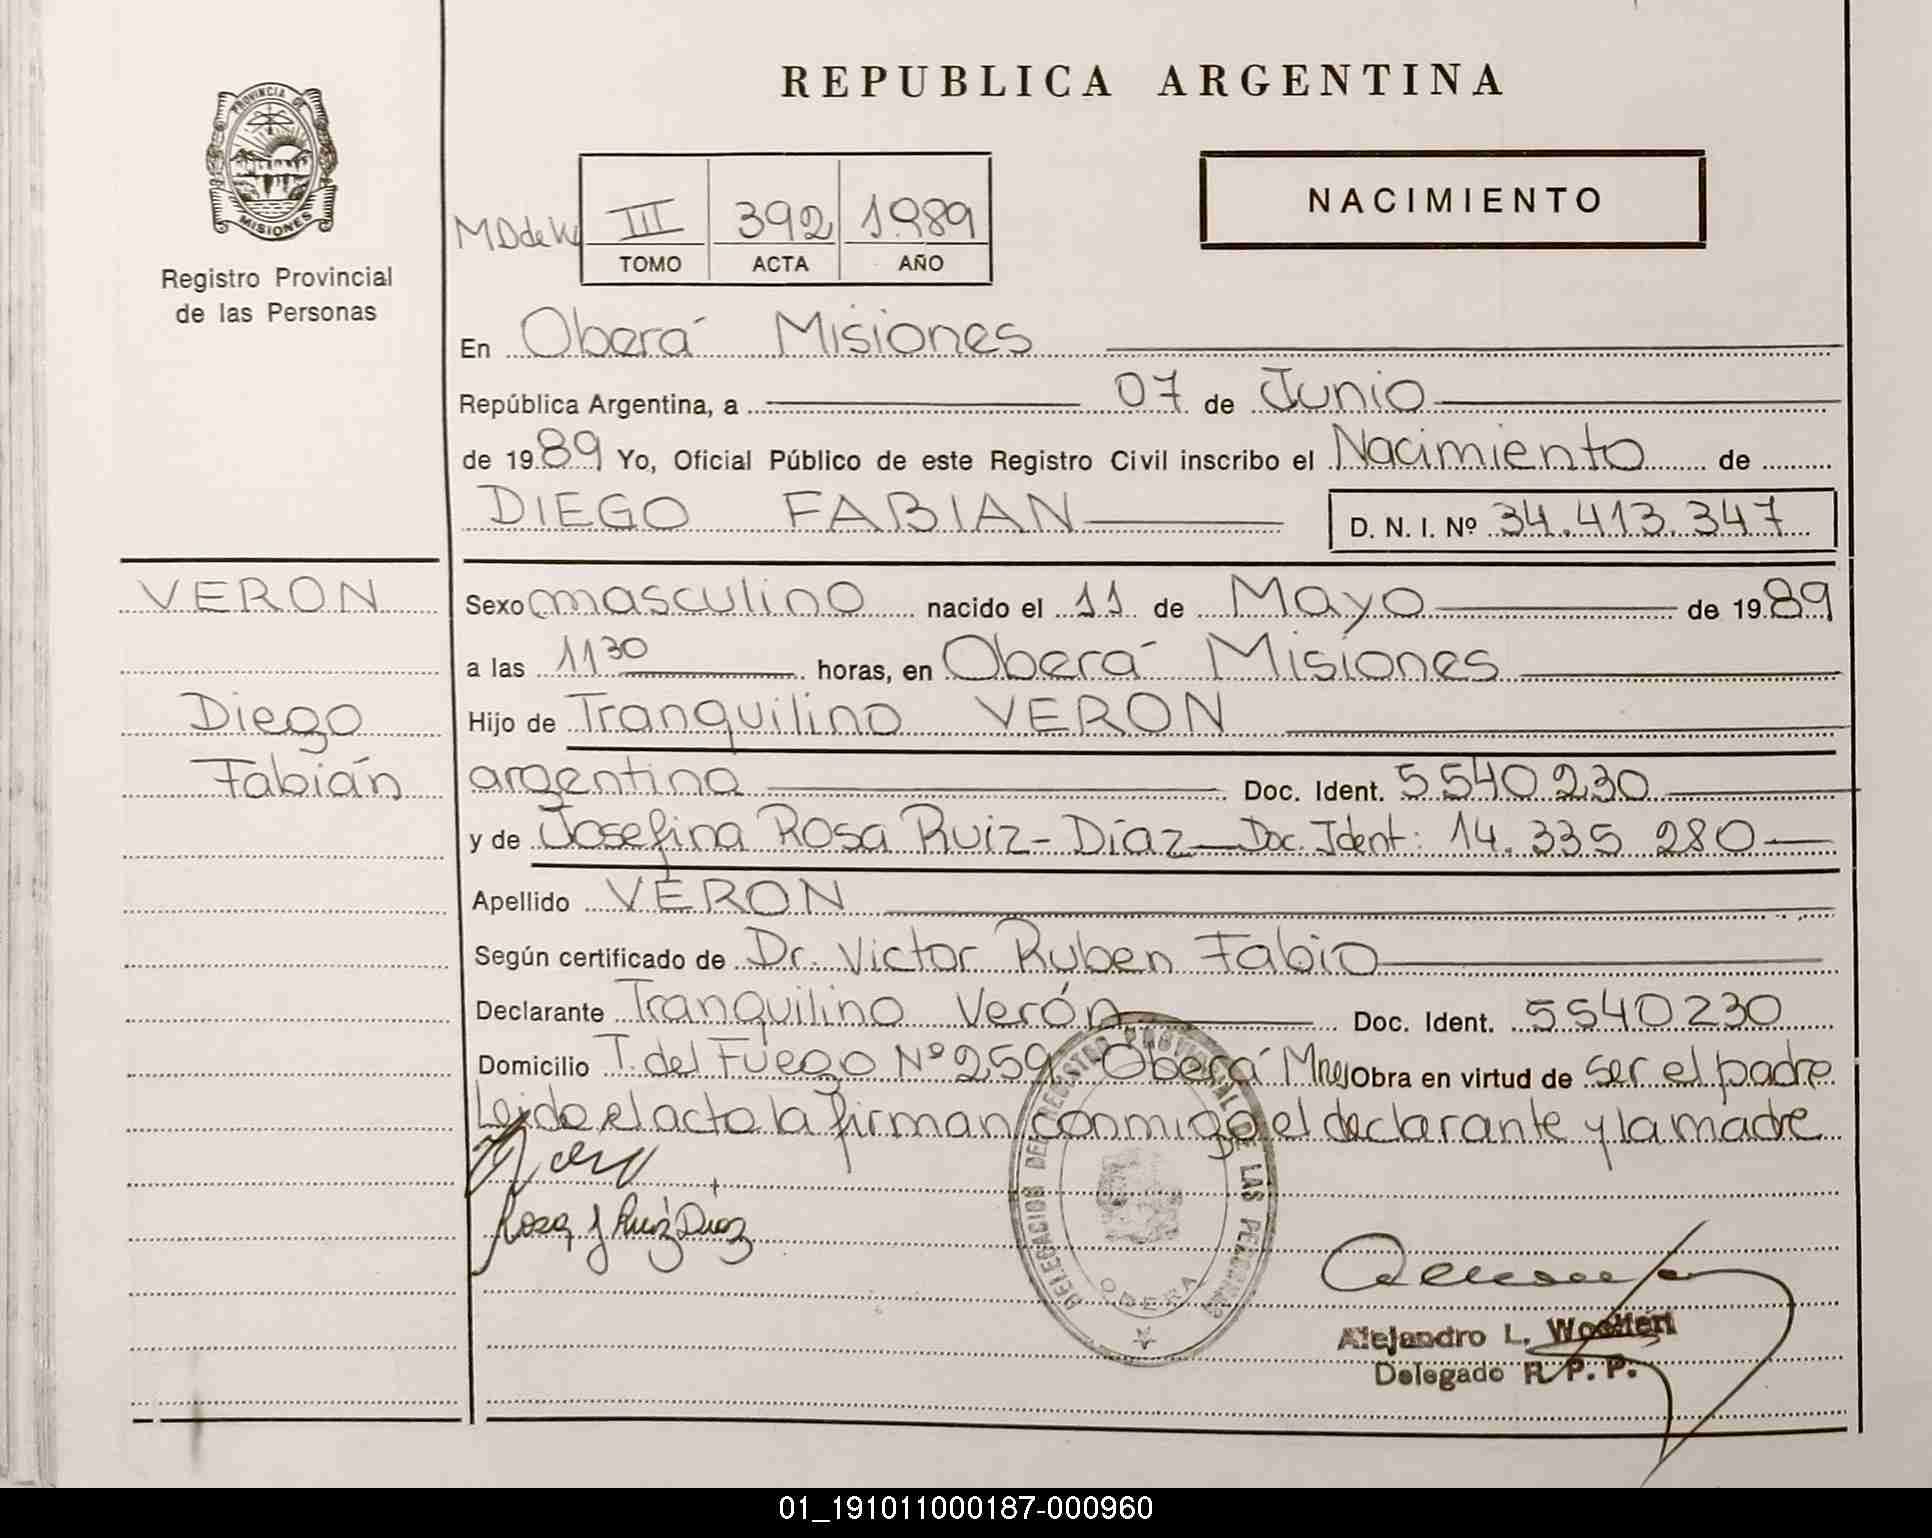 REPUBLICA ARGENTINA
PROVINCIA DE
MISIONES
Registro Provincial
de las Personas
NACIMIENTO
MDdeW
III 392 1989
TOMO ACTA AÑO
En Oberá Misiones
República Argentina, a 07 de Junio
de 1989 Yo, Oficial Público de este Registro Civil inscribo el Nacimiento de
DIEGO FABIAN D. N. I. Nº 34.413.347
VERON
Diego
Fabián
Sexo masculino nacido el 11 de Mayo de 1989
a las 11 30 horas, en Oberá Misiones
Hijo de Tranquilino VERON
argentino Doc. Ident. 5540230
y de Josefina Rosa Ruiz-Díaz-Doc. Ident: 14.335 280
Apellido VERON
Según certificado de Dr. Victor Ruben Fabio
Declarante Tranquilino Verón Doc. Ident. 5540230
Domicilio T. del Fuego Nº 259 Oberá Mnes Obra en virtud de ser el padre
Leido el acto la firman conmigo el declarante y la madre
Rosa J Ruiz Diaz
DELEGACION DEL REGISTRO PROVINCIAL DE LAS PERSONAS
OBERA
Alejandro L.
Delegado R. P. P.
01_191011000187-000960